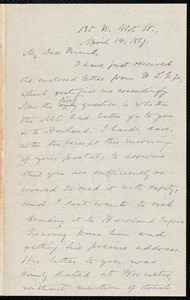 135 W. 41st St.,
April 14, 1887.
My Dear Friend,
I have just received
the enclosed letter from W. L. G. Jr.
which gratifies me exceedingly.
Now the first question is whether
the MS. had better go to you
or to Howland. I hardly dare,
after the receipt this morning
of your postal, to assume
that you are sufficiently re-
covered to read it with safety,
and I don't want to risk
sending it to Howland before
hearing from him and
getting his precise address.
His letter to you was
simply dated at Worcester,
without mention of street